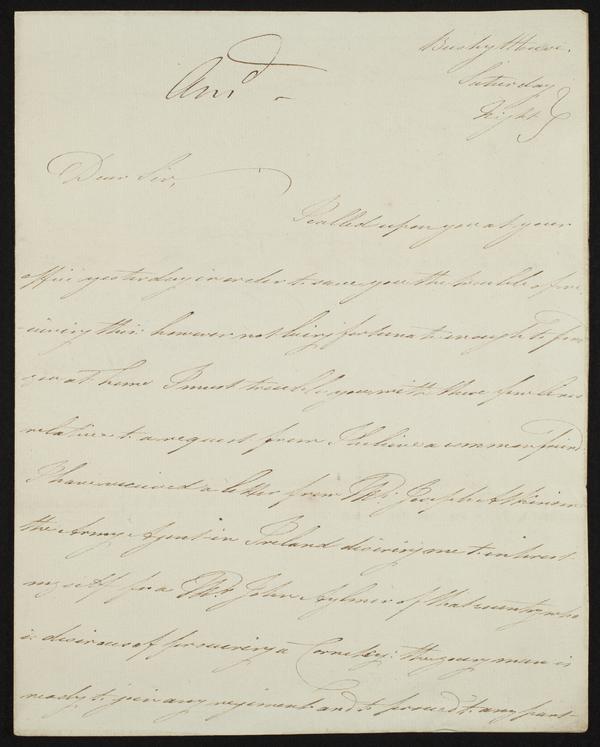 Bushy House.
Saturday
Night
And
Dear Sir,
I called upon you at your
office yesterday in order to save you the trouble of re
-ceiving this: however not being fortunate enough to find
you at home I must trouble you with these few lines
relative to a request from I believe a common friend.
I have received a letter from Mr. Joseph Atkinson
the Army Agent in Ireland desiring me to interest
myself for a Mr. John Aylmer of that country who
is desirous of procuring a Cornetcy: the young man is
ready to join any regiment and to proceed to any part